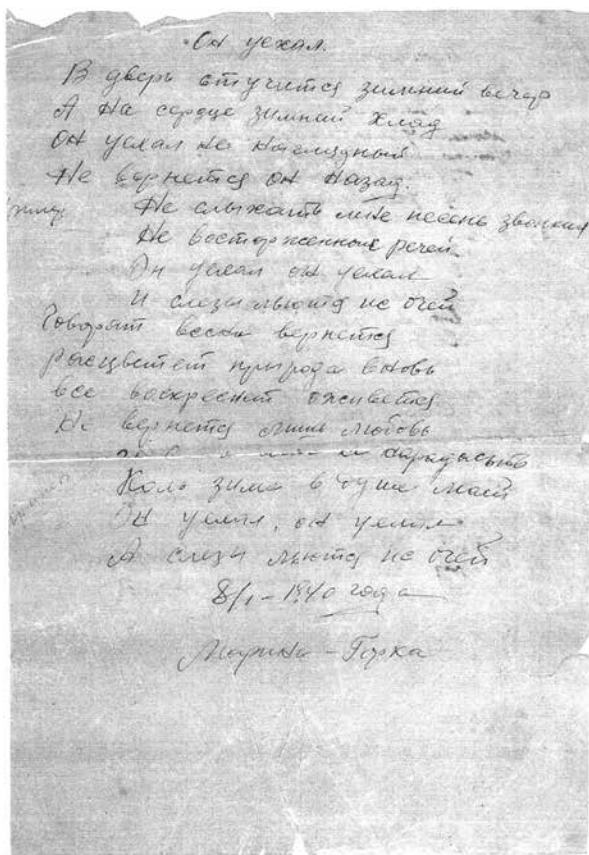 Он уехал.
В дверь стучится зимний вечер
А на сердце зимний хлад
Он уехал не наглядный
Не вернется он назад.
Не слыхать мне песень звонких
Не восторженных речей
Он уехал он уехал
И слезы льются из очей
Говорят весна вернется
Расцветет природа вновь
все воскреснит оживется
Не вернется лишь любовь
Коль зима в душе маей
Он уехал, он уехал
А слезы льются из очей
8/I – 1940 года
Марина – Горка